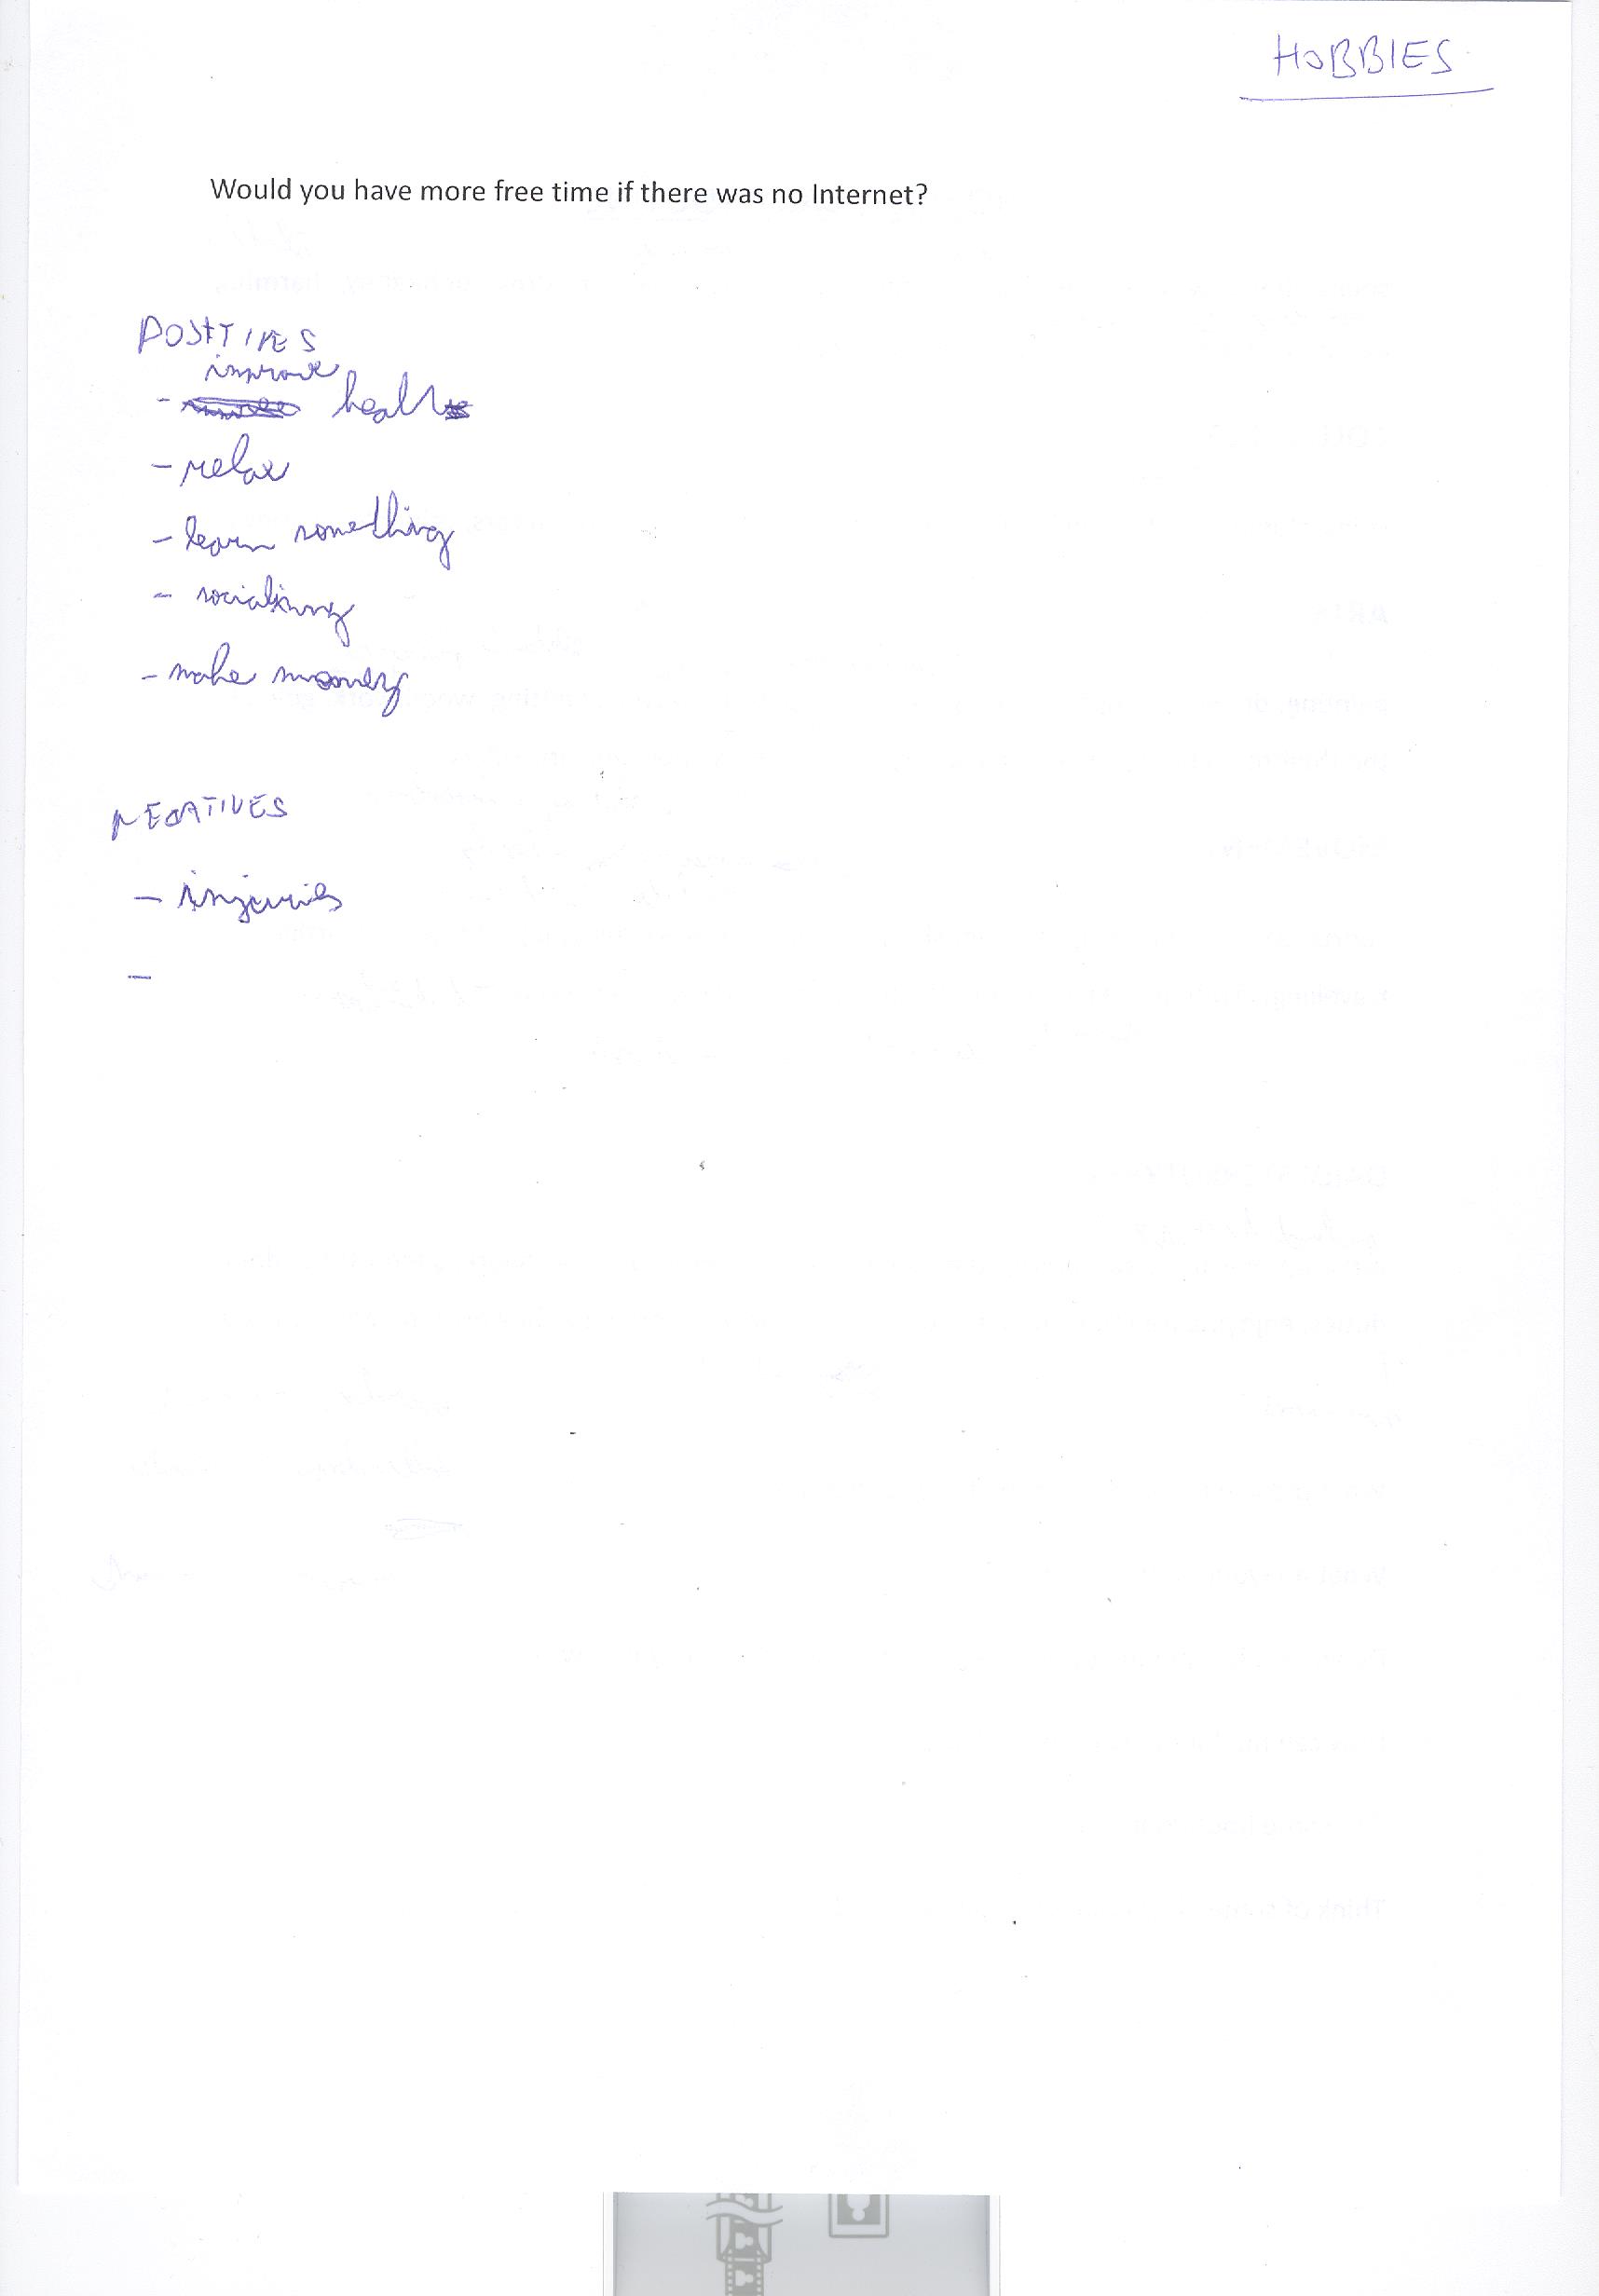 HOBBIES
Would you have more free time if there was no Internet?
POSITIVES
improve
- health
- relax
- learn something
- socialising
- make money
NEGATIVES
- injuries
-